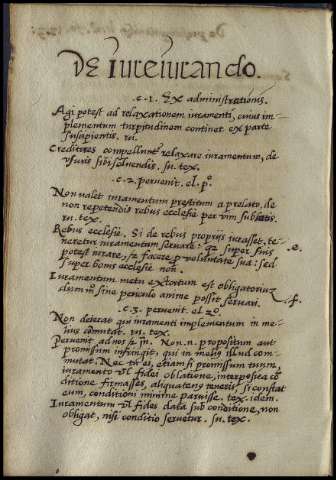 De iureiurando.
.c.1. Ex administrationis.
Agi potest ad relaxationem iuramenti, cuius im-
plementum turpitudinem continet ex parte
suscipientis.
Creditores compelluntur relaxare iuramentum, de
usuris sibi soluendis. su. tex.
.c.2. peruenit. el. p.º
Non ualet iuramentum prestitum a prelato, de
non repetendis rebus ecclesie per uim sublatis.
tex.
Rebus ecclesie. Si de rebus proprijs iurasset, te-
neretur iuramentum seruare: qz super suis
potest iurare, facere uoluntate sua: sed
super bonis ecclesie non.
.e.
Iuramentum metu extortum est obligatorium
dum sine periculo anime possit seruari.
f.
.c.3. peruenit. el 2º.
Non deierat qui iuramenti implementum in me-
lius tex.
Peruenit ad nos Non. n. propositum aut
promissum infringit, qui in melius illud com-
mutat. Nec etiam si promissum tuum,
iuramento ul fidei oblatione, interposita co-
ditione firmasses, aliquatenus teneris si constat
eum, conditioni minime paruisse. tex. idem.
Iuramentum ul fides data sub conditione, non
obligat, nisi conditio seruetur. su. tex.